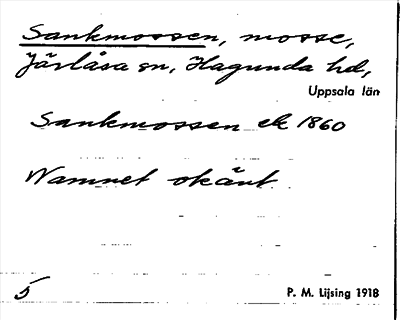 Sankmossen, mosse,
Järlåsa sn, Hagunda hd,
Uppsala län
Sankmossen ek 1860
Namnet okänt.
5
P. M. Lijsing 1918